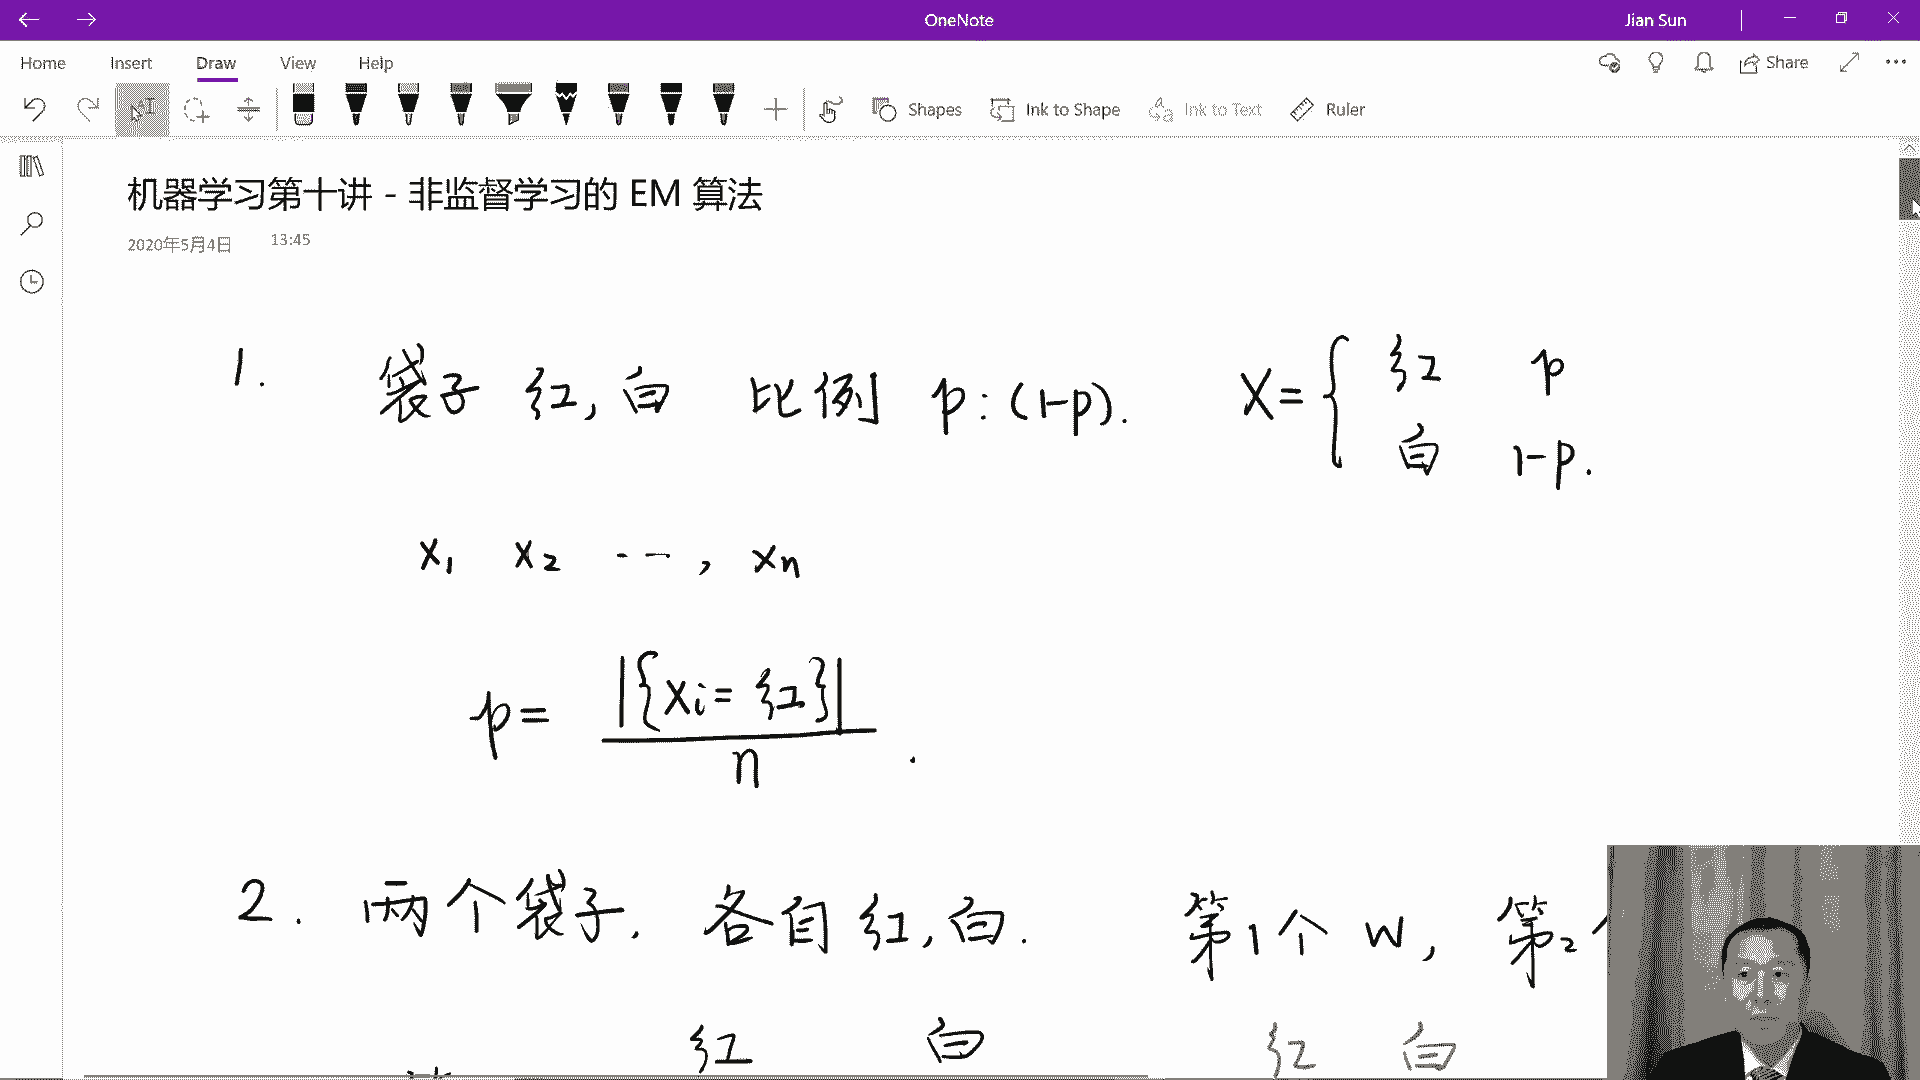 OneNote
Jian Sun
Home Insert Draw View Help
Share
Shapes Ink to Shape Ink to Text Ruler
机器学习第十讲 - 非监督学习的 EM 算法
2020年5月4日 13:45
1. 袋子 红, 白 比例 p:(1-p). X= { 红 p
白 1-p.
x₁ x₂ ..., xn
p= |{xi= 红}|
n .
2. 两个袋子. 各自红, 白. 第1个 w, 第2
红 白 红 白